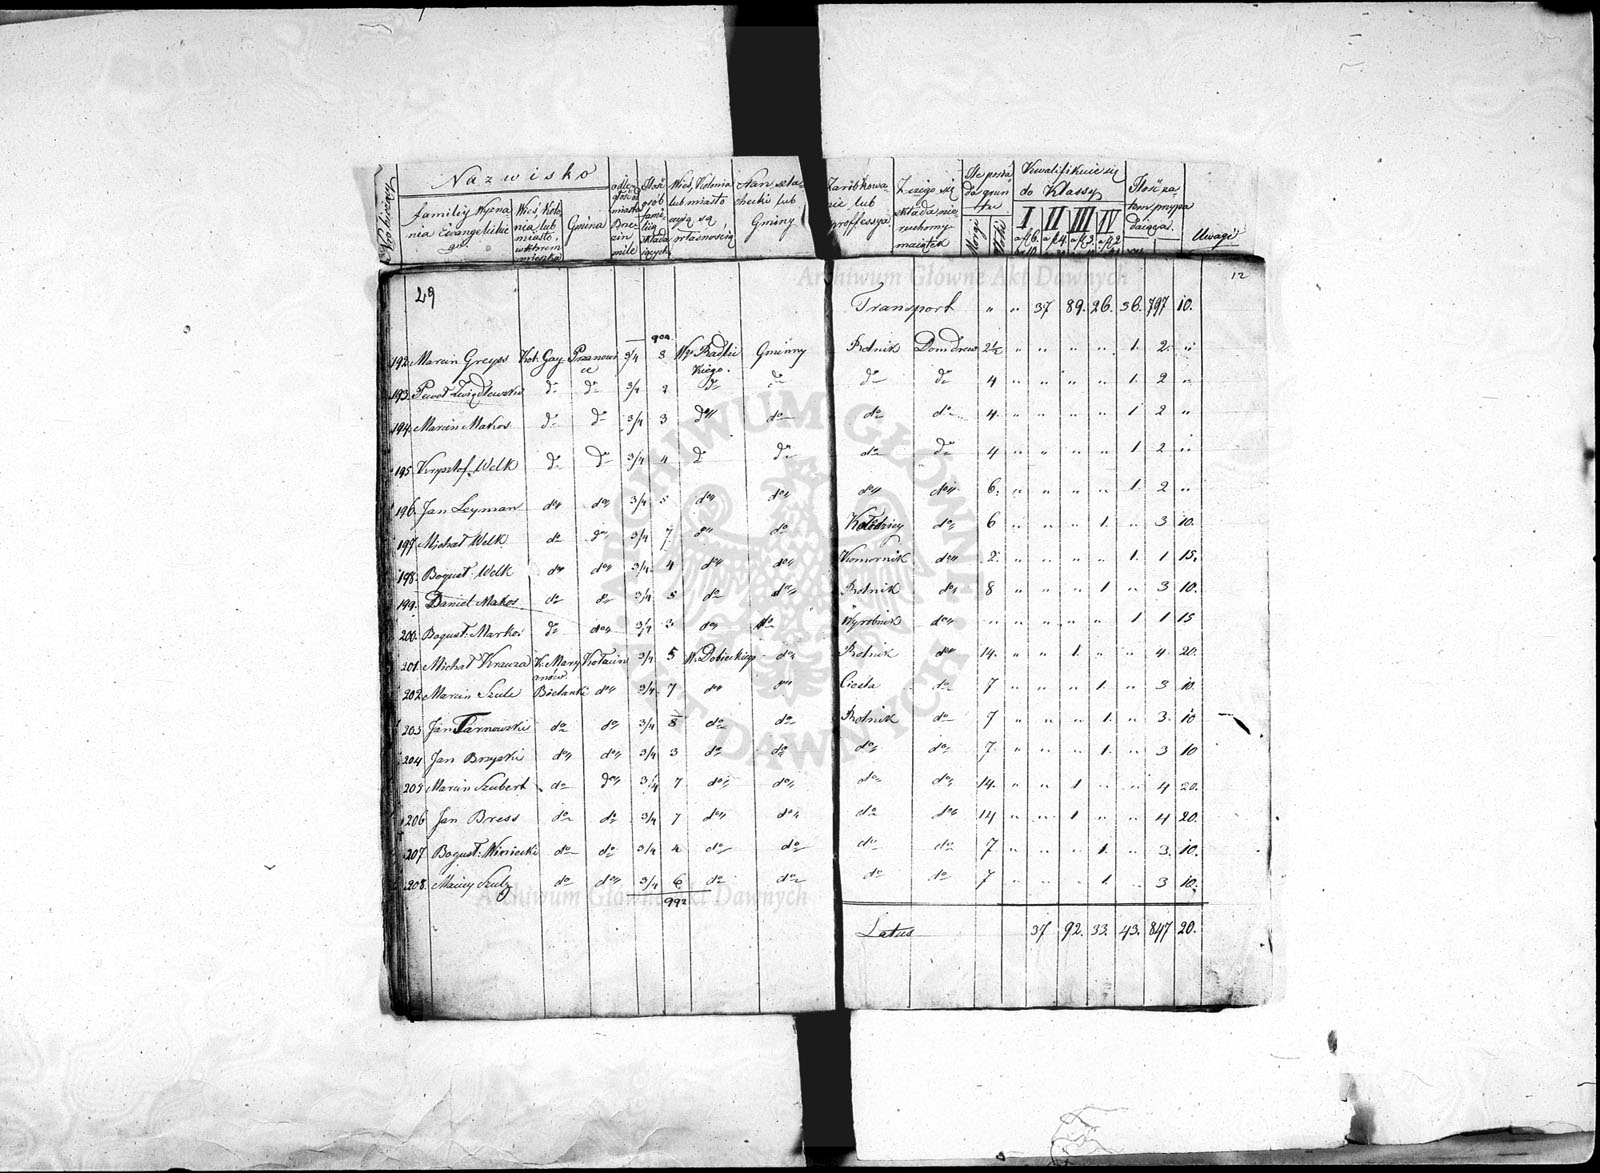 Nazwisko
familiy Wyzna
nia Ewangelickie
go
Wieś, Kolo
nia, lub
miasto,
w którem
mieszka
Gmina
odle
głość
miasta
Brze
zin
mile
Ilość
osób
famil
lią
składa
jących
Wieś, Kolonia
lub miasto
czyją są
własnością
Gminy
Zarobkowa
nie lub
professya
Z czego się
składa nie
ruchomy
majątek
Ile posia
da grun
tu
Morgi
Kwalifikuie się
do Klassy
I II III IV
Ilość za
tem przypa
dająca
Uwagi
Archiwum Główne Akt Dawnych
12
29
Transport " " 37 89. 26. 36. 797 10.
904
192. Marcin Greyss Kol. Gay Przanowi
ce 3/4 3 Wo Radlic
kiego. Gminny Rolnik Dom drew 2½ " " " " 1. 2. "
193. do do 3/4 2 do do do do 4 " " " " 1. 2 "
194. Marcin Makos do do 3/4 3 do do do do 4. " " " " 1 2 "
195. Krysztof Welk do do 3/4 4 do do do do 4 " " " " 1 2 "
196. Jan Leyman do do 3/4 5 do do do do 6. " " " " 1. 2 "
197. Michał Welk do do 3/4 7. do do Kołodziey do 6 " " " 1. " 3 10.
198. Bogusł. Welk do do 3/4. 4 do do Komornik do 2. " " " " 1. 1 15.
199. Daniel Makos do do 3/4. 5 do do Rolnik do 8 " " " 1 " 3 10.
200. Bogusł. Markos do do 3/4 3 do do Wyrobnik do " " " " " 1 1 15
201. Michał Krauza K. Mary
anów Kołacin 3/4 5 W. Dobieckiego do Rolnik do 14. " " 1 " " 4. 20.
202. Marcin Szulc Bielanki do 3/4 7 do do Cieśla do 7 " " " 1. " 3 10.
203. Jan Tarnowski do do 3/4 8 do do Rolnik do 7 " " " 1. " 3. 10
204 Jan Brzyski do do 3/4 3 do do do do 7. " " " 1. " 3 10
205 Marcin Szubert do do 3/4 7 do do do do 14. " " 1 " " 4 20.
206 Jan Bress do do 3/4 7 do do do do 14 " " 1 " " 4 20.
207 Bogusł: Winiecki do do 3/4 4 do do do do 7 " " " 1. " 3. 10.
208. Maciey Szulz do do 3/4 6 do do do do 7 " " " 1. " 3 10.
992
Archiwum Główne Akt Dawnych
Latus 37 92. 33. 43. 847 20.
ARCHIWUM GŁÓWNE AKT DAWNYCH